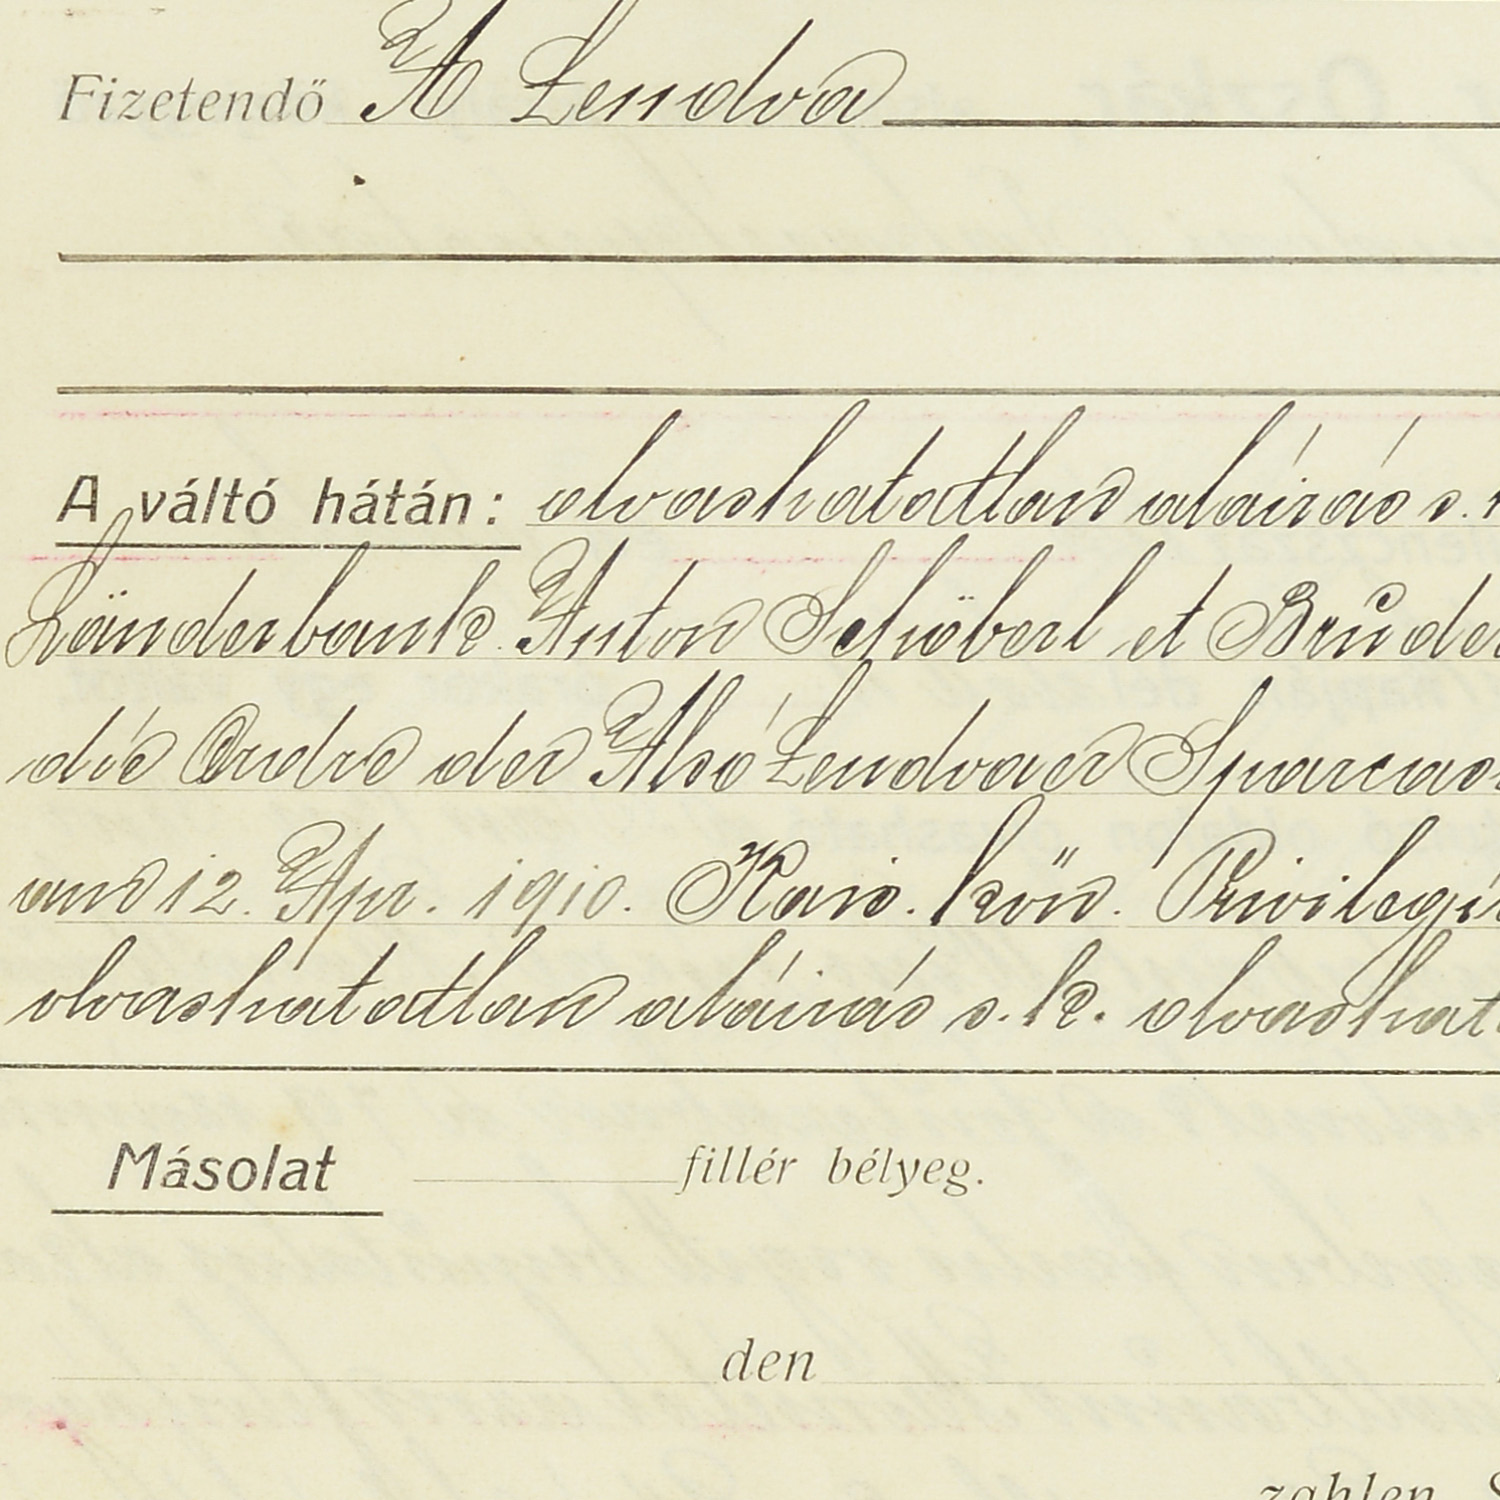 Fizetendő A Lendva
A váltó hátán: olvashatatlan aláirás s.
Länderbank. Anton Schöberl et Brüder
die Ordre der Alsó Lendvaer Sparcass
und 12. Apr. 1910. Kais. kön. Privilegi
olvashatatlan aláirás s. k. olvashat
Másolat fillér bélyeg.
den
zahlen